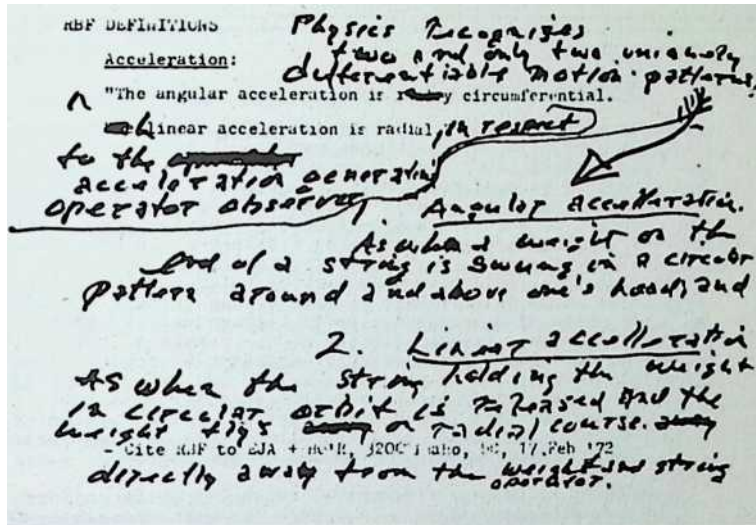 RBF DEFINITIONS
Physics recognizes
two and only two uniquely
differentiable motion patterns,
Acceleration:
"The angular acceleration is circumferential.
Linear acceleration is radial, in respect
to the
acceleration generating
operator observer
Angular accelleration.
As when a weight on the
end of a string is swung in a circular
pattern around and above one's head; and
2. Linear accelleration
As when the string holding the weight
in circular orbit is released and the
weight flys on radial course
- Cite RBF to EJA + 3200 Idaho, DC, 17 Feb '72
directly away from the weight and string
operator.